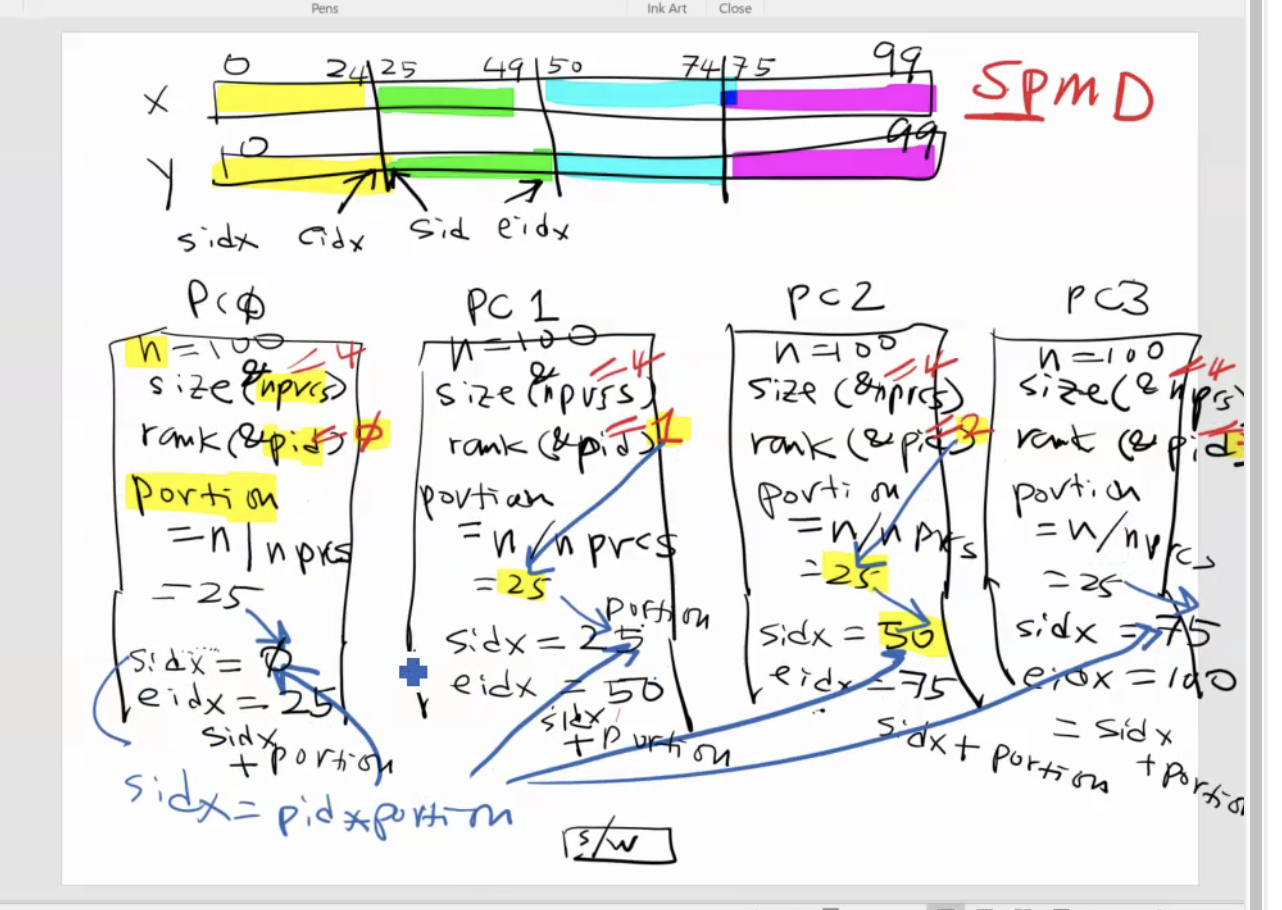 Pens Ink Art Close
0 24 25 49 50 74 75 99
X
SPMD
0 99
Y
sidx eidx sid eidx
PC0 PC1 PC2 PC3
n=100
size(&nprcs) ← 4
rank(&pid) ← 0
portion
=n/nprcs
=25
sidx=0
eidx=25
sidx
+portion
n=100
size(&nprcs) ← 4
rank(&pid) ← 1
portion
=n/nprcs
=25
portion
sidx=25
eidx=50
sidx
+portion
n=100
size(&nprcs) ← 4
rank(&pid)
portion
=n/nprcs
=25
sidx=50
eidx=75
sidx+portion
n=100
size(&nprcs) ← 4
rank(&pid
portion
=n/nprcs
=25
sidx=75
eidx=100
=sidx
+portion
sidx=pid*portion
S/W